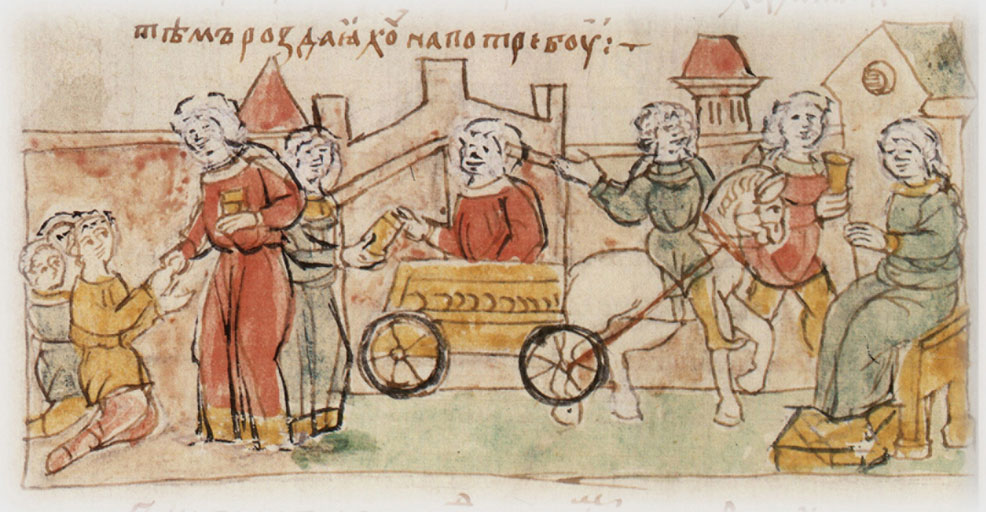 тѣмъ роздаꙗхꙋ на потребоу :~